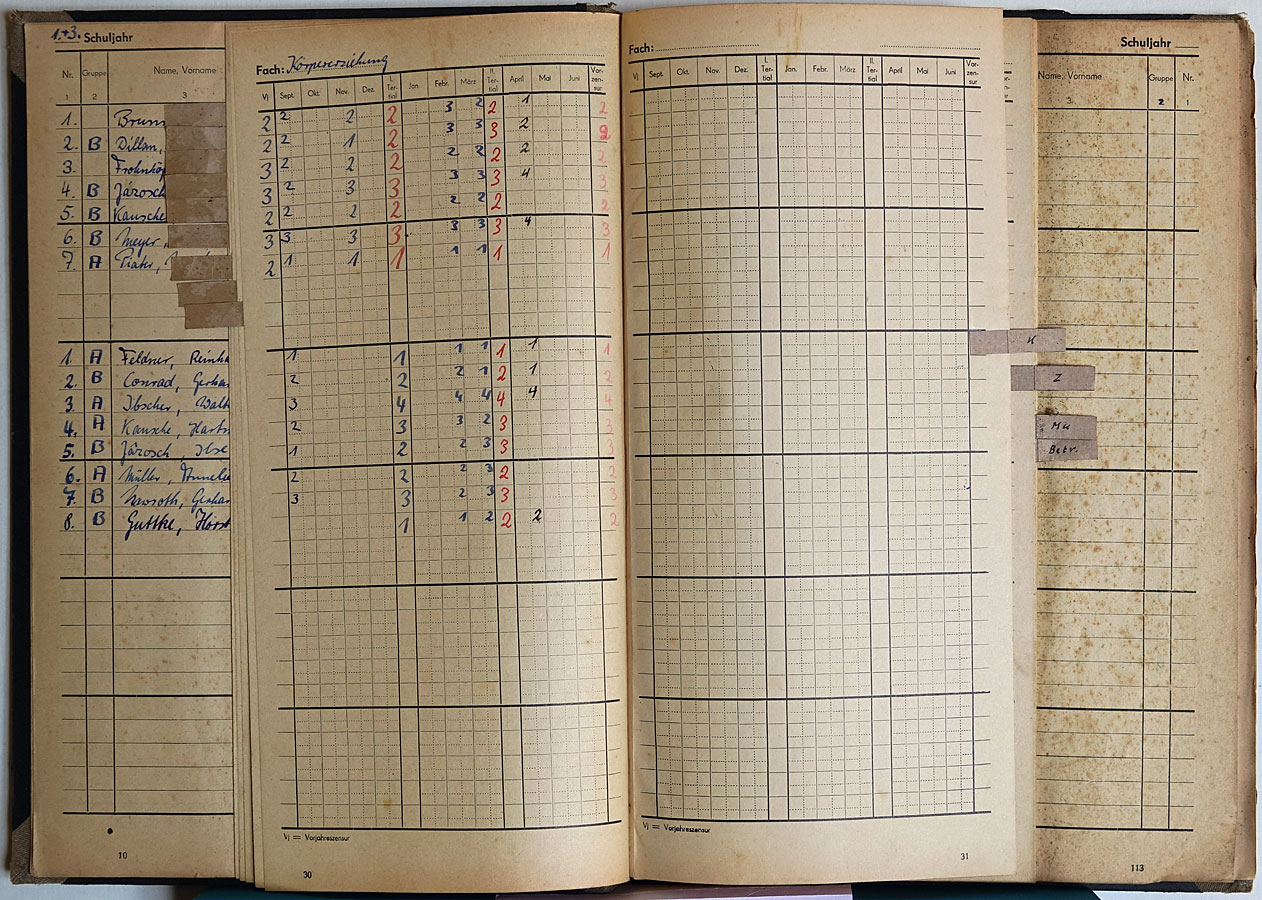 1.+3. Schuljahr
Nr. Gruppe Name, Vorname
1 2 3
1.
2. B Dillan,
3.
4. B Järosch
5. B Kausche
6. B Meyer,
7. A
1 A Feldner,
2. B Conrad,
3. A Ibscher,
4. A Kausche,
5. B Järosch, Ilse
6. A Müller,
7. B
8. B Guttke, Horst
10
Fach: Körpererziehung
Vj Sept. Okt. Nov. Dez. I. Ter- tial Jan. Febr. März II. Ter- tial April Mai Juni Vor- zen- sur
2 2 2 2 3 2 2 1 2
2 2 1 2 3 3 3 2 2
3 2 2 2 2 2 2 2 2
3 2 3 3 3 3 3 4 3
2 2 2 2 2 2 2 2
3 3 3 3 3 3 3 4 3
2 1 1 1 1 1 1 1
1 1 1 1 1 1 1
2 2 2 1 2 1 2
3 4 4 4 4 4 4
2 3 3 2 3 3
1 2 2 3 3 3
2 2 2 3 2 2
3 3 2 3 3 3
1 1 2 2 2 2
Vj = Vorjahreszensur
30
Fach:
Vj Sept. Okt. Nov. Dez. I. Ter- tial Jan. Febr. März II. Ter- tial April Mai Juni Vor- zen- sur
Vj = Vorjahreszensur
31
Schuljahr
Name, Vorname Gruppe Nr.
3 2 1
K
Z
Mu
Betr.
113